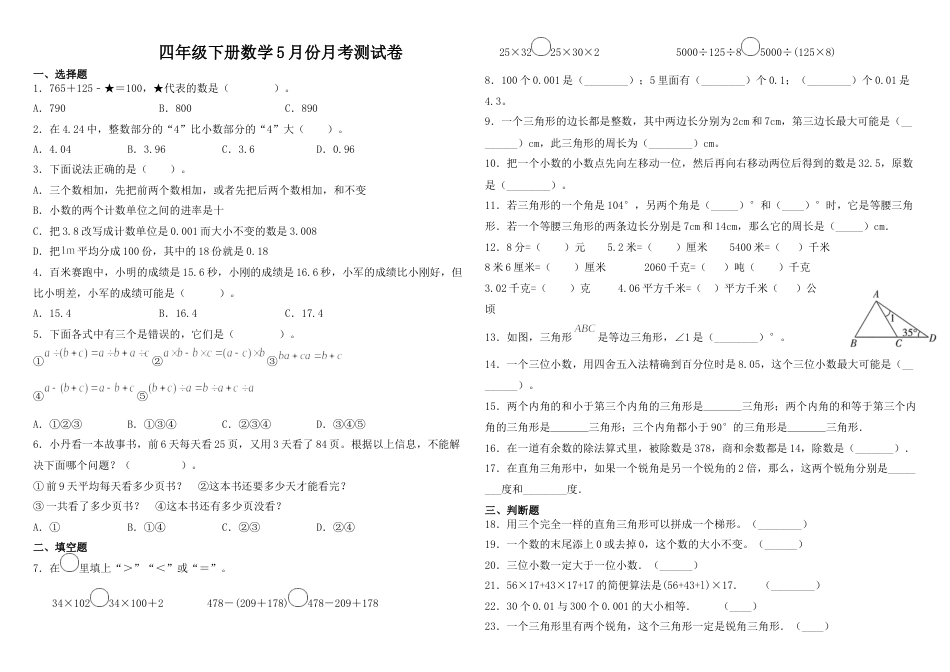 四年级下册数学5月份月考测试卷
一、选择题
1．765＋125﹣★＝100，★代表的数是（　　）。
A．790　B．800　C．890
2．在4.24中，整数部分的“4”比小数部分的“4”大（　　）。
A．4.04　B．3.96　C．3.6　D．0.96
3．下面说法正确的是（　　）。
A．三个数相加，先把前两个数相加，或者先把后两个数相加，和不变
B．小数的两个计数单位之间的进率是十
C．把3.8改写成计数单位是0.001而大小不变的数是3.008
D．把1m平均分成100份，其中的18份就是0.18
4．百米赛跑中，小明的成绩是15.6秒，小刚的成绩是16.6秒，小军的成绩比小刚好，但
比小明差，小军的成绩可能是（　　）。
A．15.4　B．16.4　C．17.4
5．下面各式中有三个是错误的，它们是（　　）。
①a÷(b+c)=a÷b+a÷c②a×b-b×c=(a-c)×b③ba+ca=b+c
④a-(b+c)=a-b+c⑤(b+c)÷a=b÷a+c÷a
A．①②③　B．①③④　C．②③④　D．③④⑤
6．小丹看一本故事书，前6天每天看25页，又用3天看了84页。根据以上信息，不能解
决下面哪个问题？（　　）。
①前9天平均每天看多少页书？　②这本书还要多少天才能看完？
③一共看了多少页书？　④这本书还有多少页没看？
A．①　B．①④　C．②③　D．②④
二、填空题
7．在○里填上“＞”“＜”或“＝”。
34×102○34×100＋2　478－(209＋178)○478－209＋178
25×32○25×30×2　5000÷125÷8○5000÷(125×8)
8．100个0.001是（________）；5里面有（________）个0.1；（________）个0.01是
4.3。
9．一个三角形的边长都是整数，其中两边长分别为2cm和7cm，第三边长最大可能是（__
______）cm，此三角形的周长为（________）cm。
10．把一个小数的小数点先向左移动一位，然后再向右移动两位后得到的数是32.5，原数
是（________）。
11．若三角形的一个角是104°，另两个角是（_____）°和（____）°时，它是等腰三角
形．若一个等腰三角形的两条边长分别是7cm和14cm，那么它的周长是（_____）cm．
12．8分=（　　）元　5.2米=（　　）厘米　5400米=（　　）千米
8米6厘米=（　　）厘米　2060千克=（　　）吨（　　）千克
3.02千克=（　　）克　4.06平方千米=（　）平方千米（　　）公
顷
A
1
35°
B　C　D
13．如图，三角形ABC是等边三角形，∠1是（________）°。
14．一个三位小数，用四舍五入法精确到百分位时是8.05，这个三位小数最大可能是（__
______）。
15．两个内角的和小于第三个内角的三角形是_______三角形；两个内角的和等于第三个内
角的三角形是_______三角形；三个内角都小于90°的三角形是_______三角形．
16．在一道有余数的除法算式里，被除数是378，商和余数都是14，除数是（_______）．
17．在直角三角形中，如果一个锐角是另一个锐角的2倍，那么，这两个锐角分别是_____
___度和________度．
三、判断题
18．用三个完全一样的直角三角形可以拼成一个梯形。（________）
19．一个数的末尾添上0或去掉0，这个数的大小不变。（______）
20．三位小数一定大于一位小数．（______）
21．56×17+43×17+17的简便算法是(56+43+1)×17．　（________）
22．30个0.01与300个0.001的大小相等．　（____）
23．一个三角形里有两个锐角，这个三角形一定是锐角三角形．（____）